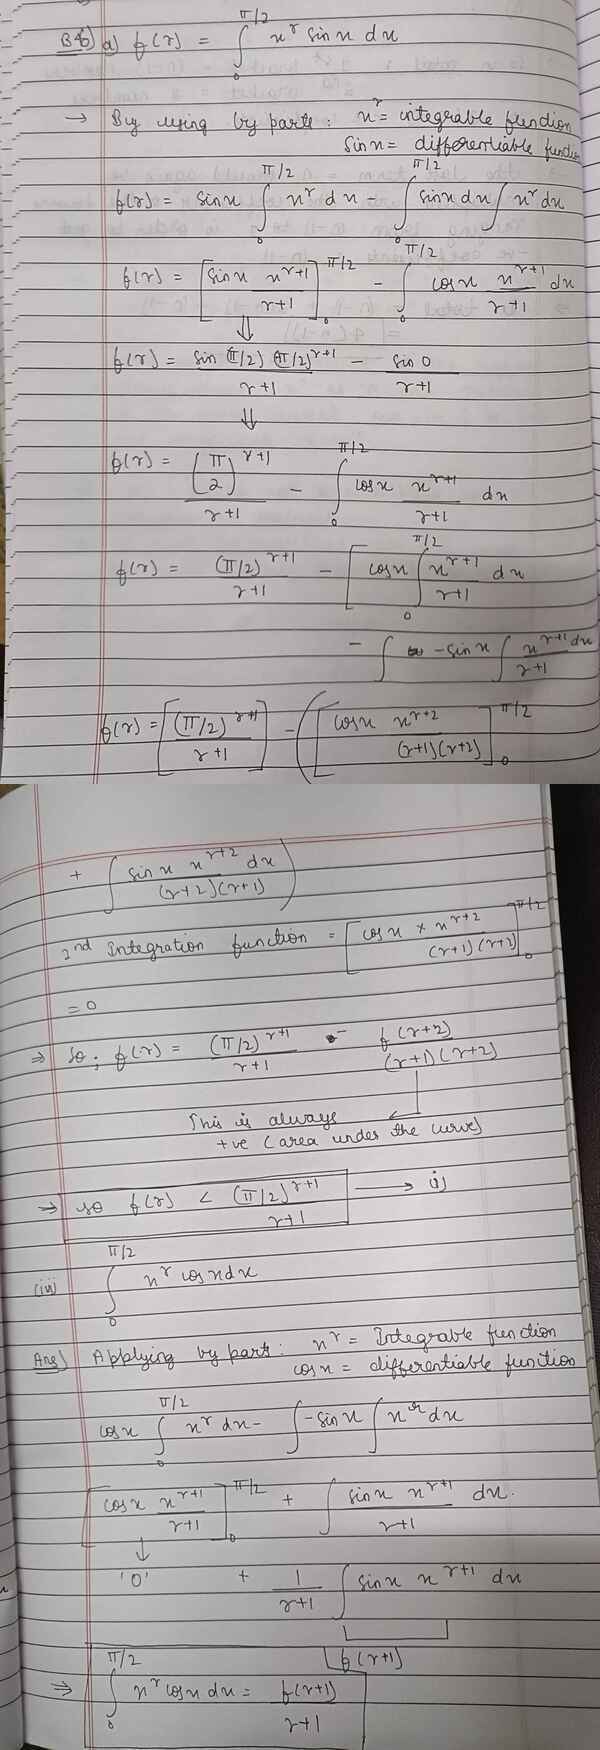 B4) a) f(r) = ∫₀^{π/2} x^r sin x dx
→ By using by parts: x^r = integrable function
sin x = differentiable function
f(r) = sin x ∫₀^{π/2} x^r dx - ∫₀^{π/2} sin x dx ∫ x^r dx
f(r) = [sin x x^{r+1}/r+1]₀^{π/2} - ∫₀^{π/2} cos x x^{r+1}/r+1 dx
⇓
f(r) = sin(π/2) (π/2)^{r+1}/r+1 - sin 0/r+1
⇓
f(r) = (π/2)^{r+1}/r+1 - ∫₀^{π/2} cos x x^{r+1}/r+1 dx
f(r) = (π/2)^{r+1}/r+1 - [cos x ∫₀^{π/2} x^{r+1}/r+1 dx
- ∫ -sin x ∫ x^{r+1} dx/r+1
f(r) = [(π/2)^{r+1}/r+1] - ([cos x x^{r+2}/(r+1)(r+2)]₀^{π/2}
+ ∫ sin x x^{r+2} dx/(r+2)(r+1))
2nd Integration function = [cos x × x^{r+2}/(r+1)(r+2)]₀^{π/2}
= 0
⇒ so; f(r) = (π/2)^{r+1}/r+1 - f(r+2)/(r+1)(r+2)
This is always
+ve (area under the curve)
⇒ so f(r) < (π/2)^{r+1}/r+1 → i)
∫₀^{π/2} x^r cos x dx
Ans) Applying by part: x^r = Integrable function
cos x = differentiable function
cos x ∫₀^{π/2} x^r dx - ∫ -sin x ∫ x^r dx
[cos x x^{r+1}/r+1]₀^{π/2} + ∫ sin x x^{r+1}/r+1 dx.
↓
'0' + 1/r+1 ∫ sin x x^{r+1} dx
f(r+1)
⇒ ∫₀^{π/2} x^r cos x dx = f(r+1)/r+1